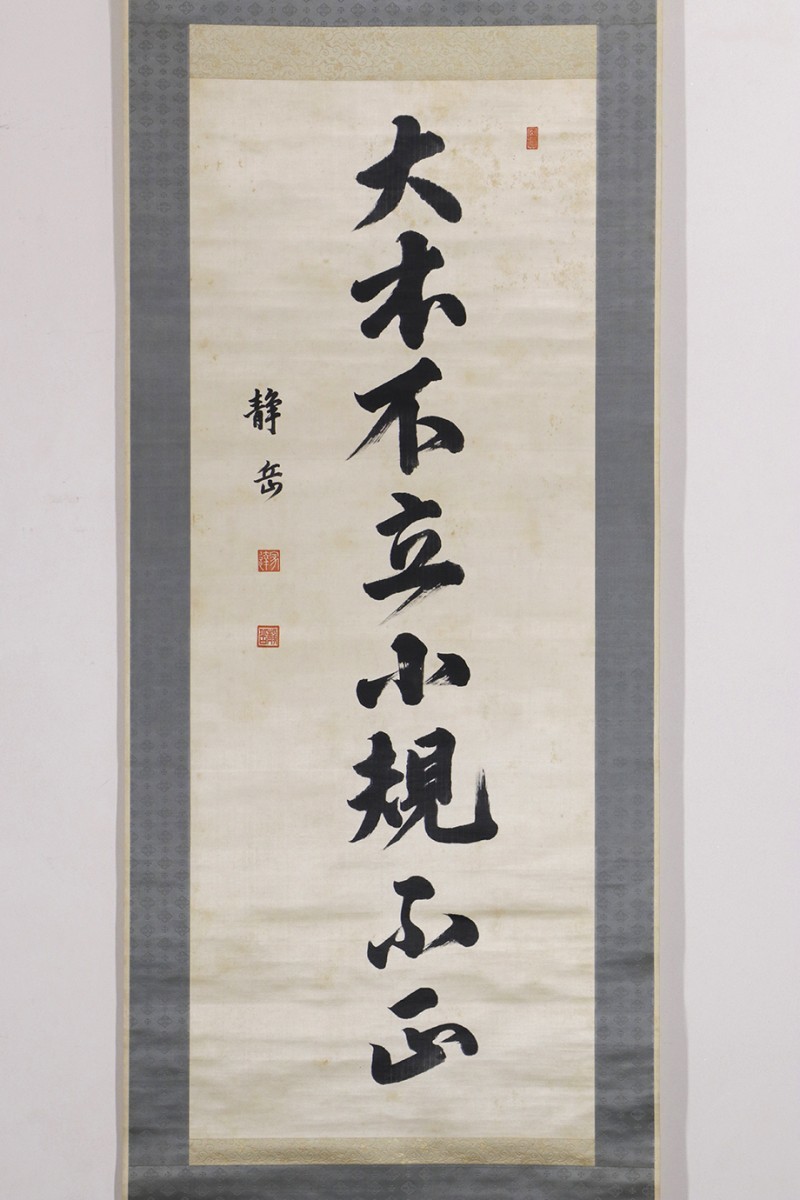 大本不立小規不正
静岳